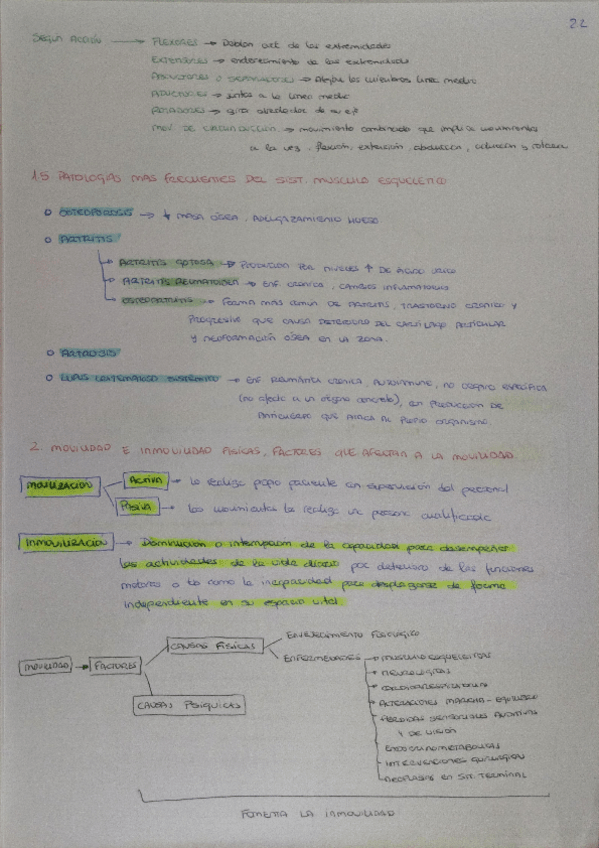 2L
SEGÚN ACCIÓN → FLEXORES → Doblan art. de las extremidades
EXTENSORES → enderezamiento de las extremidades
ABDUCTORES O SEPARADORES → Alejan los miembros línea media
ADUCTORES → juntos a la línea media
ROTADORES → gira alrededor de su eje
MOV. DE CIRCUNDUCCIÓN → movimiento combinado que implica movimientos
a la vez, flexión, extensión, abducción, aducción y rotación
1.5 PATOLOGÍAS MAS FRECUENTES DEL SIST. MUSCULO ESQUELETICO
OSTEOPOROSIS → ↓ MASA ÓSEA, ADELGAZAMIENTO HUESO
ARTRITIS
ARTRITIS GOTOSA → PRODUCIDA POR NIVELES ↑ DE ÁCIDO ÚRICO
ARTRITIS REUMATOIDEA → ENF. CRÓNICA, CAMBIOS INFLAMATORIOS
OSTEOARTRITIS → FORMA MÁS COMÚN DE ARTRITIS, TRASTORNO CRÓNICO Y
PROGRESIVO QUE CAUSA DETERIORO DEL CARTÍLAGO ARTICULAR
Y NEOFORMACIÓN ÓSEA EN LA ZONA.
ARTROSIS
LUPUS ERITEMATOSO SISTÉMICO → ENF. REUMÁTICA CRÓNICA, AUTOINMUNE, NO ÓRGANO ESPECÍFICA
(no afecta a un órgano concreto), CON PRODUCCIÓN DE
ANTICUERPO QUE ATACA AL PROPIO ORGANISMO.
2. MOVILIDAD E INMOVILIDAD FISICAS, FACTORES QUE AFECTAN A LA MOVILIDAD.
MOVILIZACION
ACTIVA → lo realiza propio paciente con supervisión del personal
PASIVA → los movimientos los realiza una persona cualificada
INMOVILIZACION → Disminución o interrupción de la capacidad para desempeñar
las actividades de la vida diaria por deterioro de las funciones
motoras o tb como la incapacidad para desplazarse de forma
independiente en su espacio vital.
MOVILIDAD → FACTORES
CAUSAS FISICAS
ENVEJECIMIENTO FISIOLÓGICO
ENFERMEDADES
MUSCULO ESQUELETICAS
NEUROLOGICAS
CARDIORRESPIRATORIAS
ALTERACIONES MARCHA - EQUILIBRIO
PÉRDIDAS SENSORIALES AUDITIVAS
Y DE VISIÓN
ENDOCRINOMETABOLICAS
INTERVENCIONES QUIRURGICAS
NEOPLASIAS EN SIT. TERMINAL
CAUSAS PSIQUICAS
FOMENTA LA INMOVILIDAD